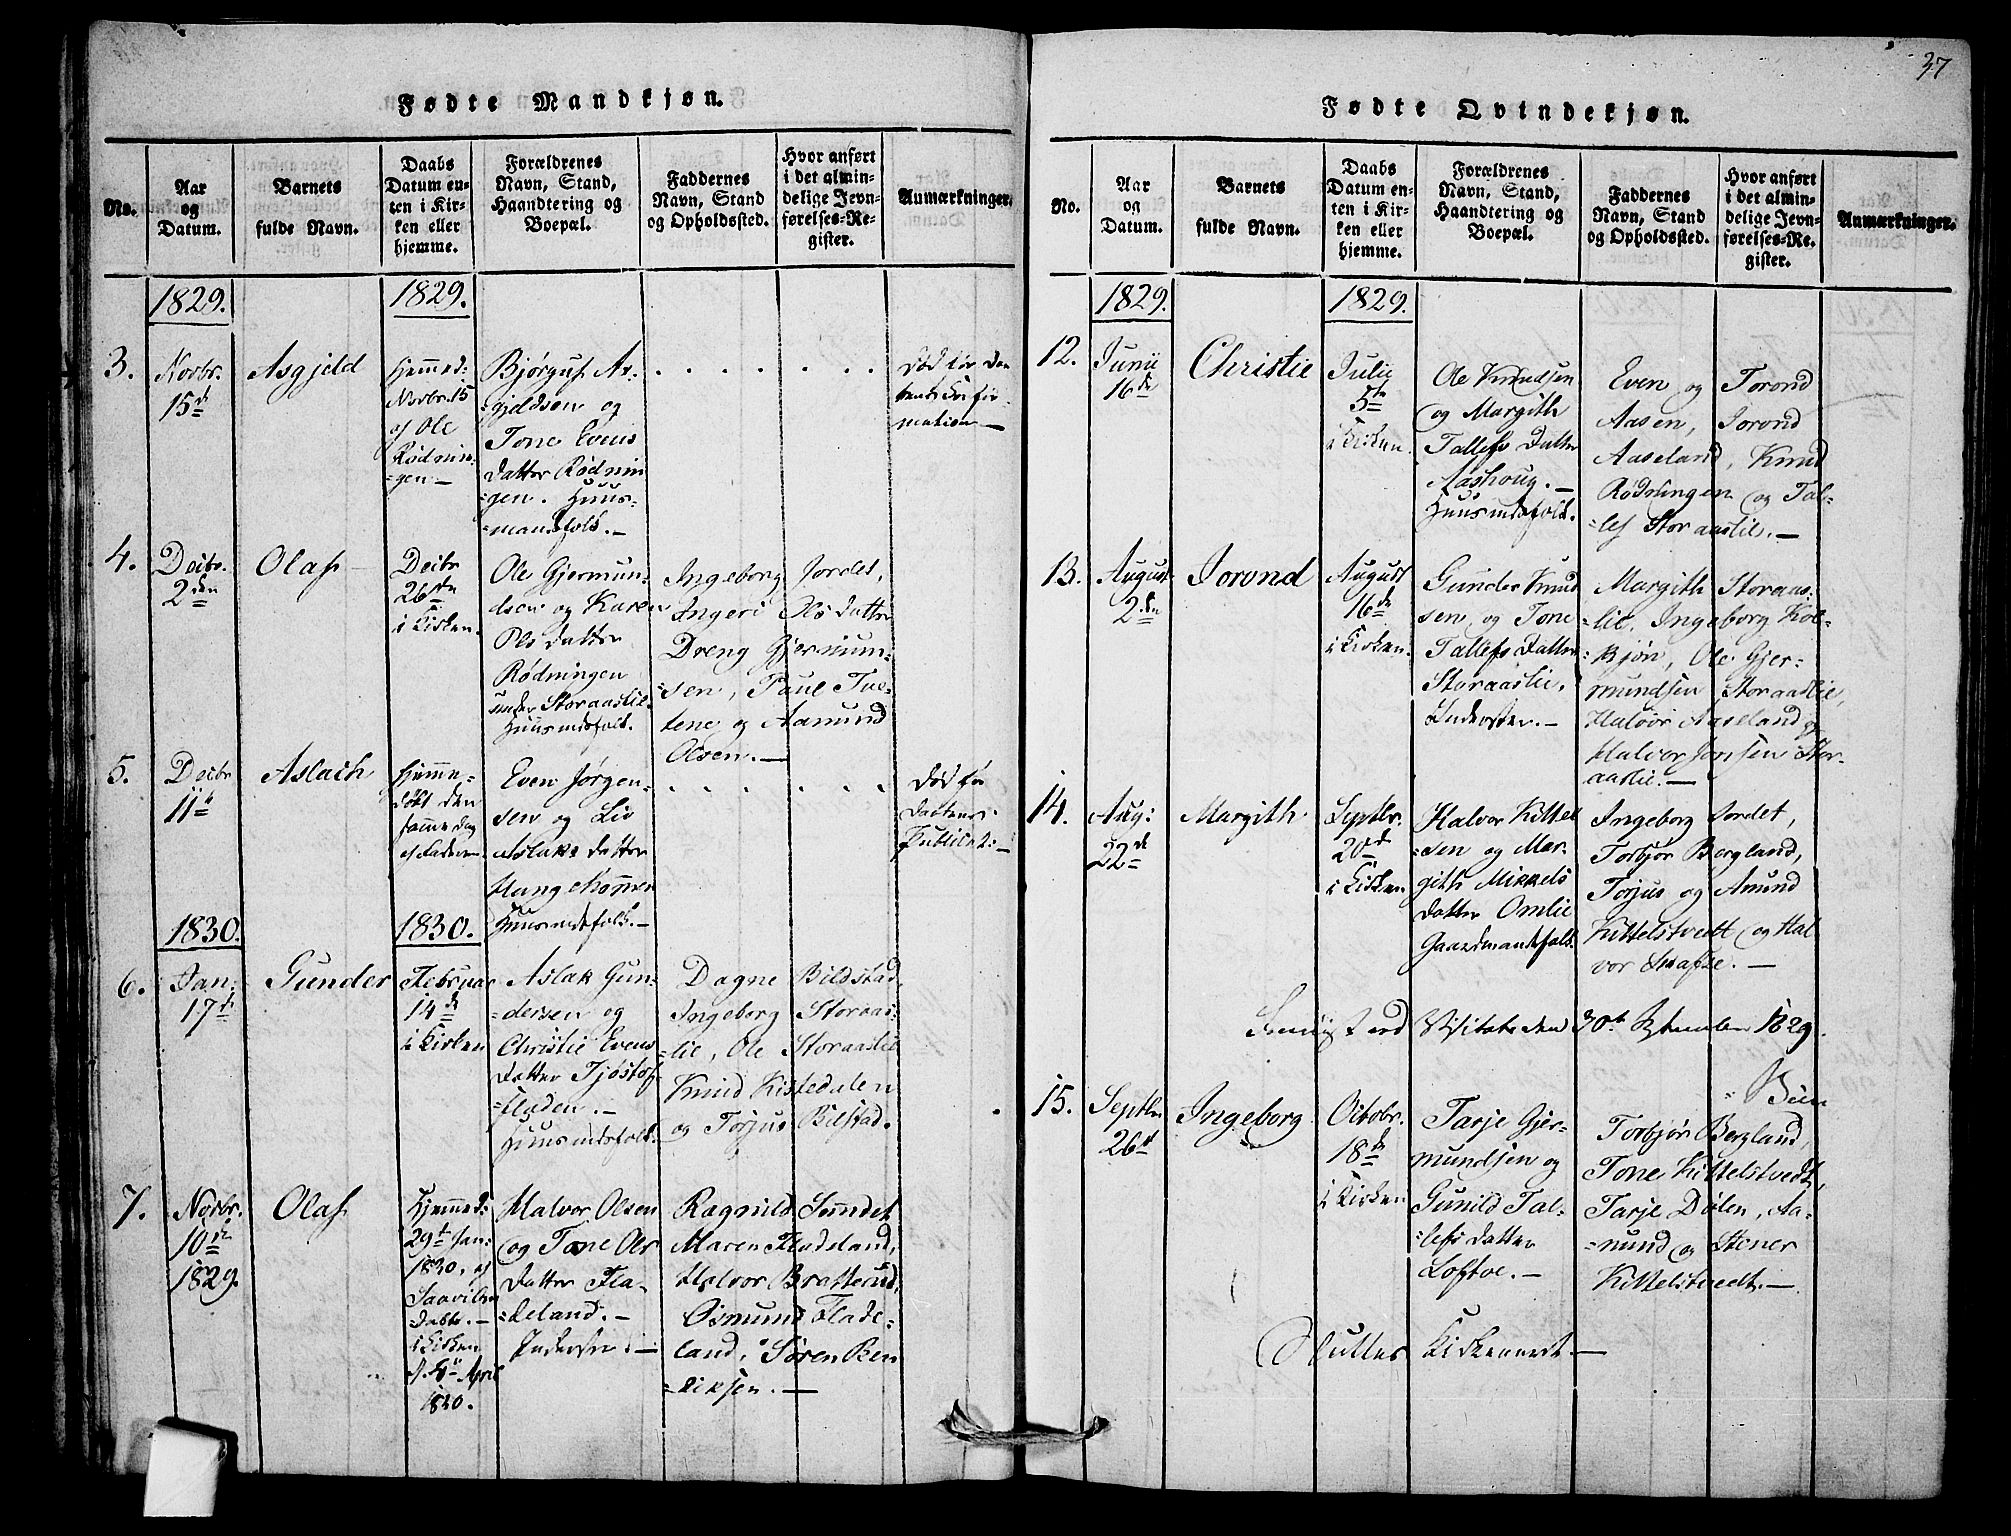 37
Fødte Mandkjøn.
No.
Aar
og
Datum.
Barnets
fulde Navn.
Daabs
Datum en-
ten i Kir-
ken eller
hjemme.
Forældrenes
Navn, Stand,
Haandtering og
Boepæl.
Faddernes
Navn, Stand
og Opholdssted.
Hvor anført
i det almin-
delige Jevn-
førelses-Re-
gister.
Anmærkninger.
1829.
1829.
3.
Novbr.
15d
Asgjeld
Hjemmed:
Novbr. 15
af Ole
Rødnin-
=gen —
Bjørguf As-
=gjeldsen og
Tone Evens
Datter Rødnin
=gen. Huus-
=mandsfolk. —
Død før Den
mation —
4.
Decbr.
2den
Olaf
Decbr
26de
i Kirken.
Ole Gjermun-
dsen og Karen
Ols Datter
Rødningen
under Storaaslie
Huusmdsfolk.
Ingeborg Jordet,
Ingeri Ols Datter
Dreng Gjermun-
=sen, Paul Tve-
tene og Aamund
Olsen. —
5.
Decbr
11te
Aslach
Hjemme-
døbt den
samme Dag
af Faderen.
Even Jørgen-
sen og Liv
Aslaks Datter
Huusmdsfolk. —
Død før
Daabens
Publicat: —
1830.
1830.
6.
Jan:
17de
Gunder
Februar
14de
i Kirken
Aslak Gun-
=dersen og
Christie Evens
Datter Tjøstof
=fladen. —
Huusmdsfolk.
Dagne Bildstad,
Ingeborg Storaas-
lie, Ole Storaaslie
Knud Kistedalen
og Torjus Bilstad.
7.
Novbr.
10de
1829.
Olaf
Hjemmed:
29t Jan:
1830, af
Dabt. —
i Kirken
April
1830.
Halvor Olsen
og Tone Ols
Datter Fla-
=deland. —
Inderster. —
Ragnild Sundet
Maren Fladeland,
Halvor Bratterud,
Osmund Flade-
land, Søren Ben
=diksen. —
Fødte Qvindekjøn.
No.
Aar
og
Datum.
Barnets
fulde Navn.
Daabs
Datum en-
ten i Kir-
ken eller
hjemme.
Forældrenes
Navn, Stand,
Haandtering og
Boepæl.
Faddernes
Navn, Stand
og Opholdssted.
Hvor anført
i det almin-
delige Jevn-
førelses-Re-
gister.
Anmærkninger.
1829.
1829.
12.
Junii
16de
Christie
Julie
5te
i Kirken.
Ole Knudsen
og Margith
Tallefs Datter
Aashoug. —
Huusmdsfolk.
Even og Torond
Aasen, Jorond
Aaseland, Knud
Rødningen og Tal-
=lef Storaaslie. —
13.
August
2den
Jorond
August
16de
i Kirken.
Gunder Knud
sen, og Tone
Tallefs Datter
Storaaslie,
Inderster. —
Margith Storaas-
=lie, Ingeborg Kol-
=bjøn, Ole Gjer-
mundsen Storaaslie,
Halvor Aaseland og
Halvor Jonsen Stor-
aaslie. —
14.
Aug:
22de
Margith.
Septbr.
20de
i Kirken
Halvor Kittel
=sen og Mar-
gith Mikkels
Datter Omlie
Gaardmandsfolk.
Ingeborg Jordet,
Torbjør Bergland,
Torjus og Amund
Kittelstvedt og Hal
vor Skafse. —
Visitatsen 30te September 1829.
15.
Septbr.
26de
Ingeborg
Octobr.
18de
i Kirken
Tarje Gjer-
mundsen og
Gunild Tal-
=lefs Datter
Loftve. —
Torbjør Bergland,
Tone Kittelstvedt,
Tarje Dølen, Aa-
=mund og Stener
Kittelstvedt. —
Sluttes Kirkeaaret. —